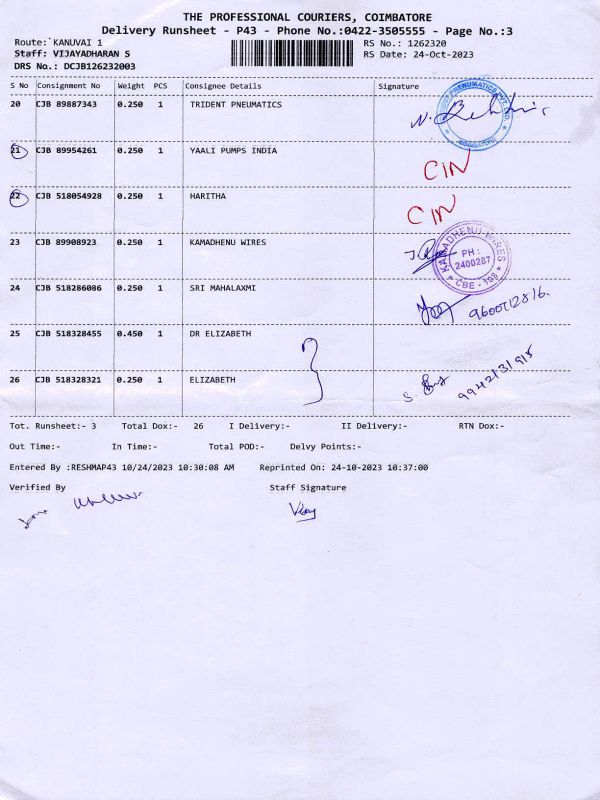 THE PROFESSIONAL COURIERS, COIMBATORE
Delivery Runsheet - P43 - Phone No.:0422-3505555 - Page No.:3
Route: KANUVAI 1
RS No.: 1262320
Staff: VIJAYADHARAN S
RS Date: 24-Oct-2023
DRS No.: DCJB126232003
S No Consignment No Weight PCS Consignee Details Signature
20 CJB 89887343 0.250 1 TRIDENT PNEUMATICS
COIMBATORE
21 CJB 89954261 0.250 1 YAALI PUMPS INDIA
CIN
22 CJB 518054928 0.250 1 HARITHA
CIN
23 CJB 89908923 0.250 1 KAMADHENU WIRES
KAMADHENU WIRES
PH :
2400287
* CBE - 108 *
24 CJB 518286086 0.250 1 SRI MAHALAXMI
9600712816.
25 CJB 518328455 0.450 1 DR ELIZABETH
26 CJB 518328321 0.250 1 ELIZABETH
9942131915
Tot. Runsheet:- 3 Total Dox:- 26 I Delivery:- II Delivery:- RTN Dox:-
Out Time:- In Time:- Total POD:- Delvy Points:-
Entered By :RESHMAP43 10/24/2023 10:30:08 AM Reprinted On: 24-10-2023 10:37:00
Verified By Staff Signature
Vijay